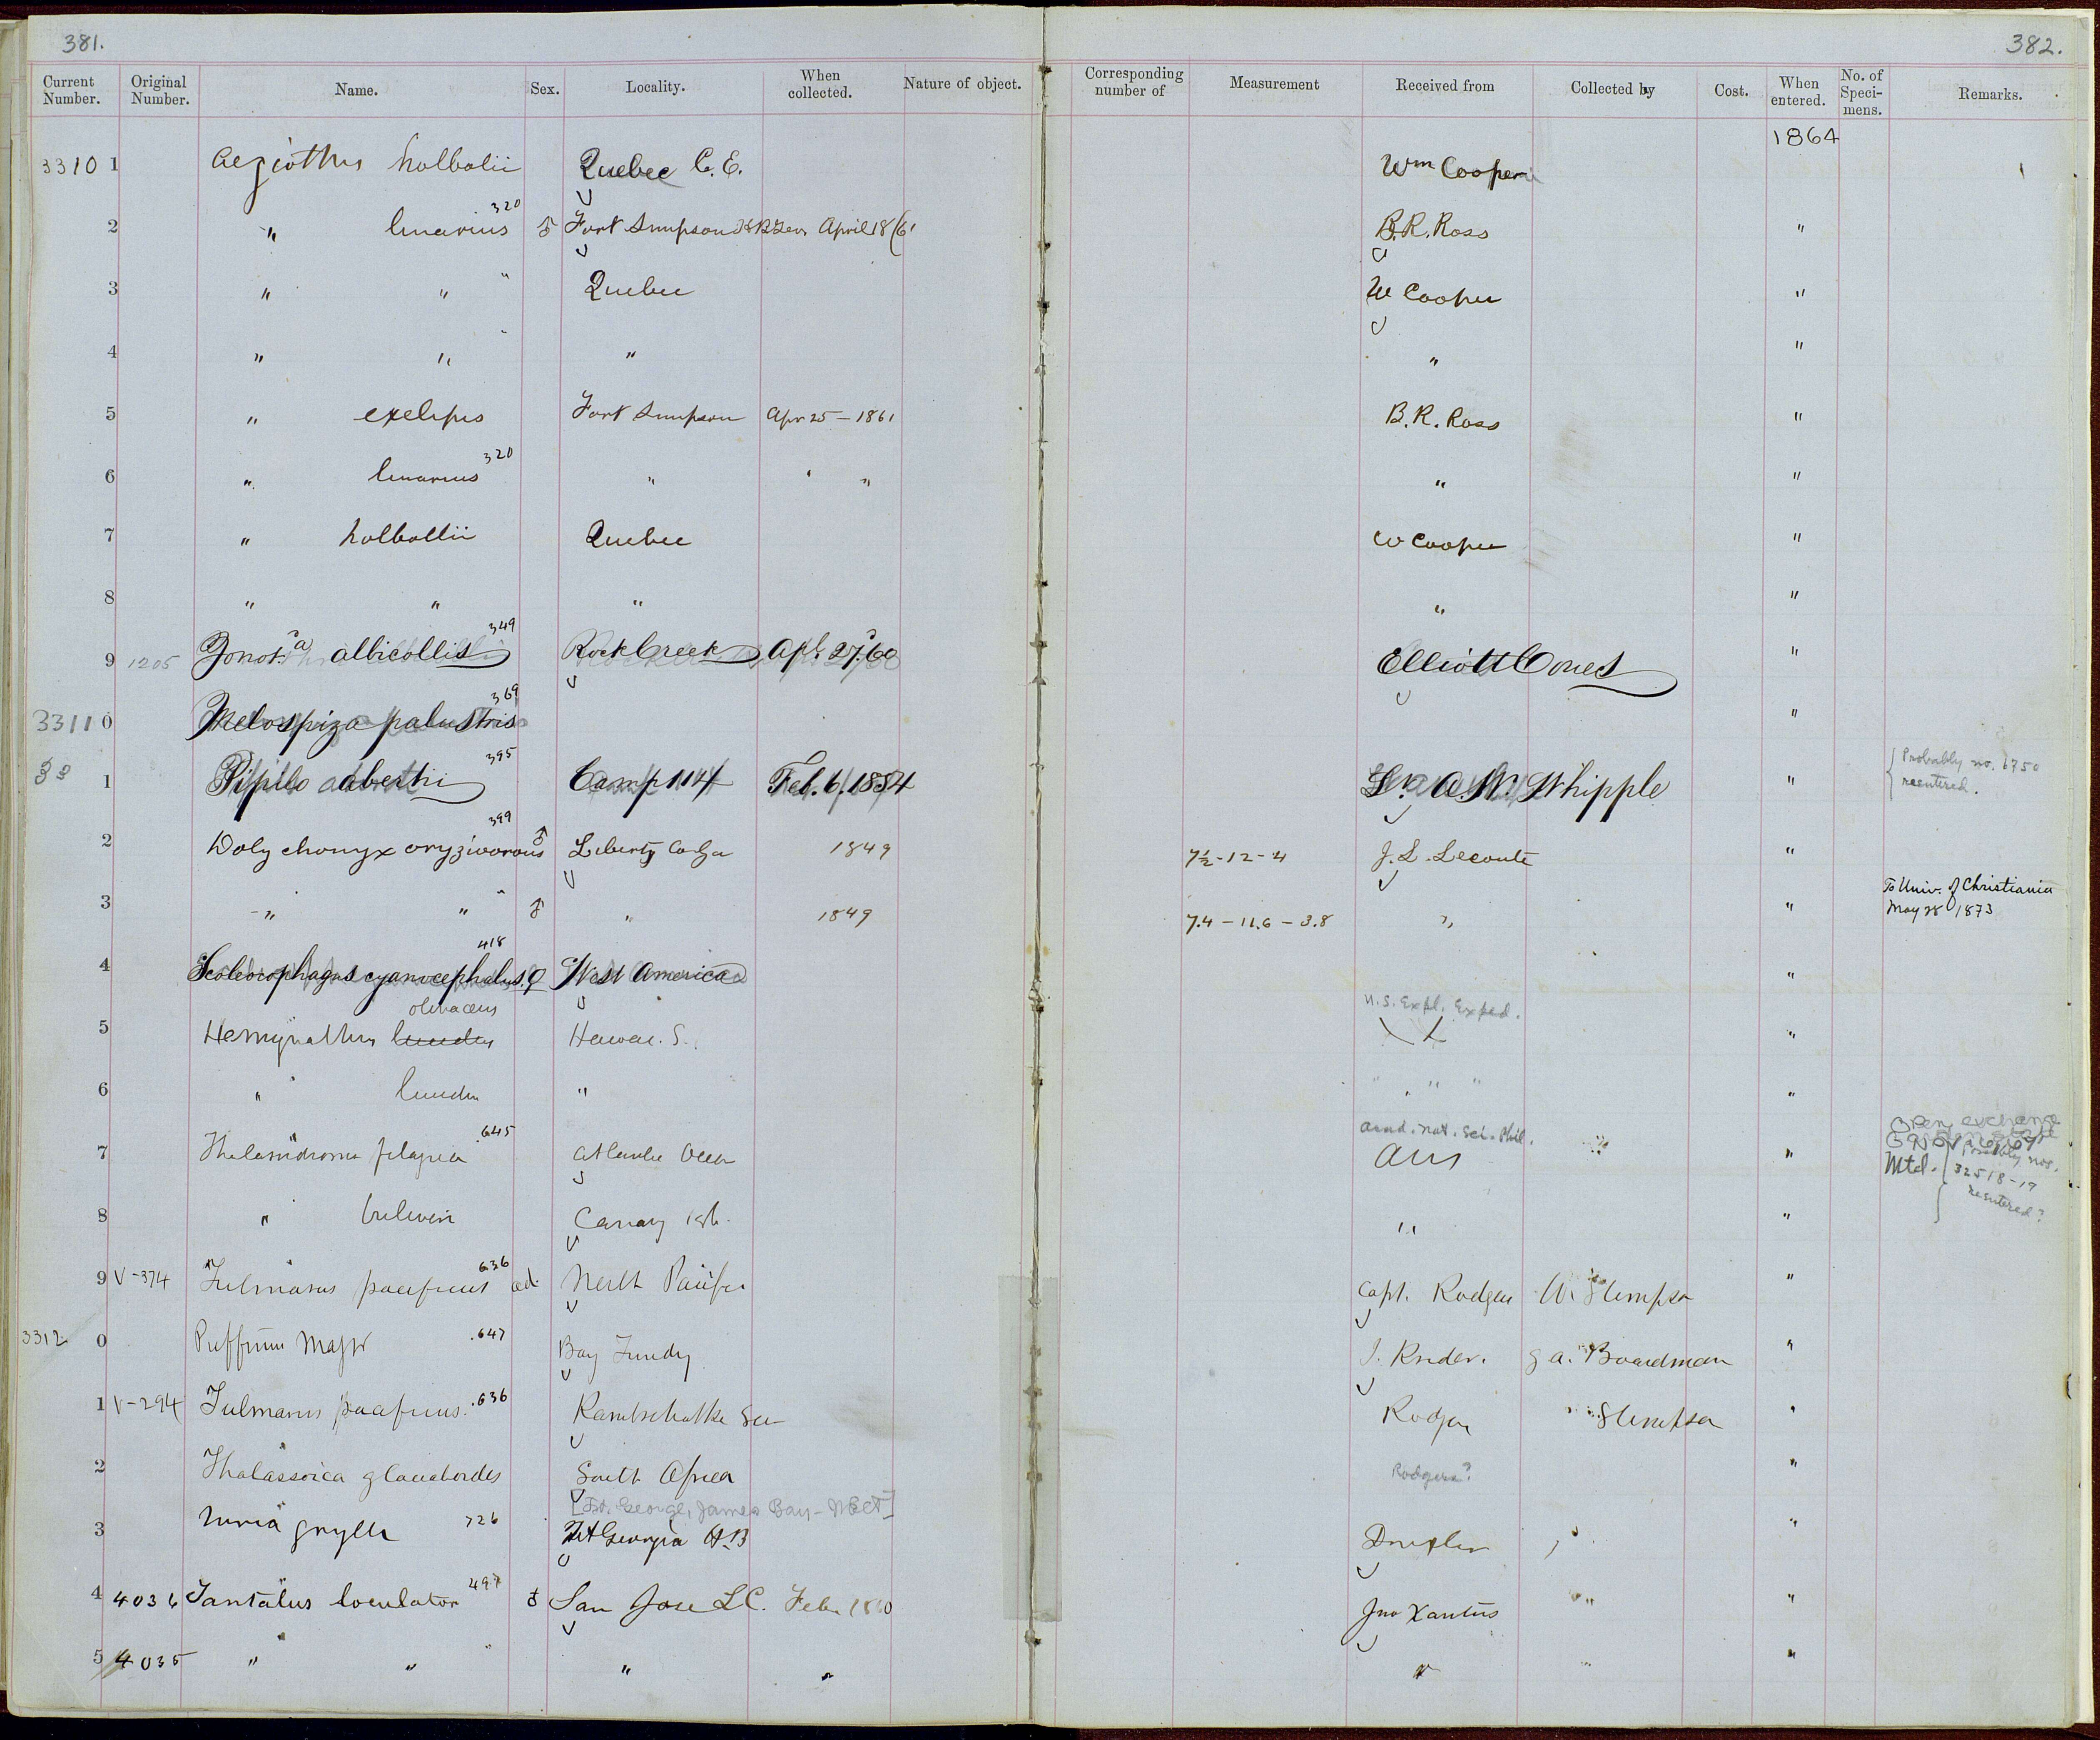 381.
382.
Current Number. Original Number. Name. Sex. Locality. When collected. Nature of object. Corresponding number of Measurement Received from Collected by Cost. When entered. No. of Speci-mens. Remarks.
1864
3310 1 Aegiothus holbolii Quebec C.E. Wm Cooper
2 " linarius 320 Fort Simpson April 18/61 B.R. Ross "
3 " " " Quebec W Cooper "
4 " " " " "
5 " exelipes Fort Simpson Apr 25-1861 B.R. Ross "
6 " linarius 320 " " " "
7 " holbollii Quebec W Cooper "
8 " " " " "
9 1205 Zonot.a albicollis 349 Rock Creek Apl. 27, 60 Elliott Coues "
33110 Melospiza palustris 369 "
33 1 Pipilo abertii 395 Camp 114 Feb. 6. 1854 Lt. A.W. Whipple " Probably no. 6750 reentered.
2 Dolychonyx oryzivorous 399 ♂ Liberty Co Ga 1849 7½-12-4 J.L. Leconte "
3 " " " ♂ " 1849 7.4-11.6-3.8 " " To Univ. of Christiania May 28 1873
4 Scoleocophagus cyanocephalus. 418 ♀ West America "
olivaceus
U.S. Expl. Exped.
5 Hemignathus lucidus Hawai. S. "
6 " lucidus " " " " "
7 Thalassidroma pelagica 645 Atlantic Ocean Acad. Nat. Sci. Phil. Ans " Open exchange
Mtd. Possibly nos. 32518-19 reentered?
8 " bulweri Canary Isls. " "
9 V-374 Fulmarus pacificus 636 ad. North Pacific Capt. Rodgers W. Stimpson "
3312 0 Puffinus Major .647 Bay Fundy G. A. Boardman "
1 V-294 Fulmarus pacificus .636 Kamtschatka Sea Rodgers Stimpson "
2 Thalassoica glacialoides South Africa Rodgers? "
[Ft. George, James Bay - NEct]
3 Uria grylle 726 Ft Georgia H.B Drexler "
4 4036 Tantalus loculator 497 San Jose L.C. Feb. 1860 Jno Xantus " "
5 4035 " " " " " " " "